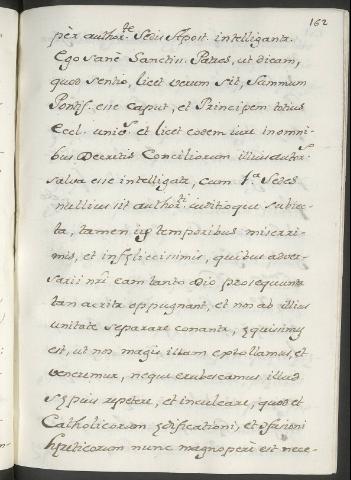 162
pèr author.te Sedis Apost. intelligantr.
Ego sanè Sanctiss. Patres, ut dicam,
quod sentio, licet verum sit, Summum
Pontif. esse Caput, et Principem totius
Eccl. univ.s et licet eodem iure in omni-
bus Decretis Conciliorum illius autor.s
salva esse intelligatr, cum p.a Sedes
nullius sit author.ti iuditioque subiec-
ta, tamen iis temporibus miserri-
mis, et infęlicissimis, quibus adver-
sarii nri eam tanto odio prosequuntr
tan acritèr oppugnant, et nos ab illius
unitate separare conantr, ęquissimũ
est, ut nos magis illam extollamus, et
veneremur, neque erubescamus illud
sępius repetere, et inculcare, quod et
Catholicorum ędificationi, et
hęreticorum nunc magnoperè est nece-